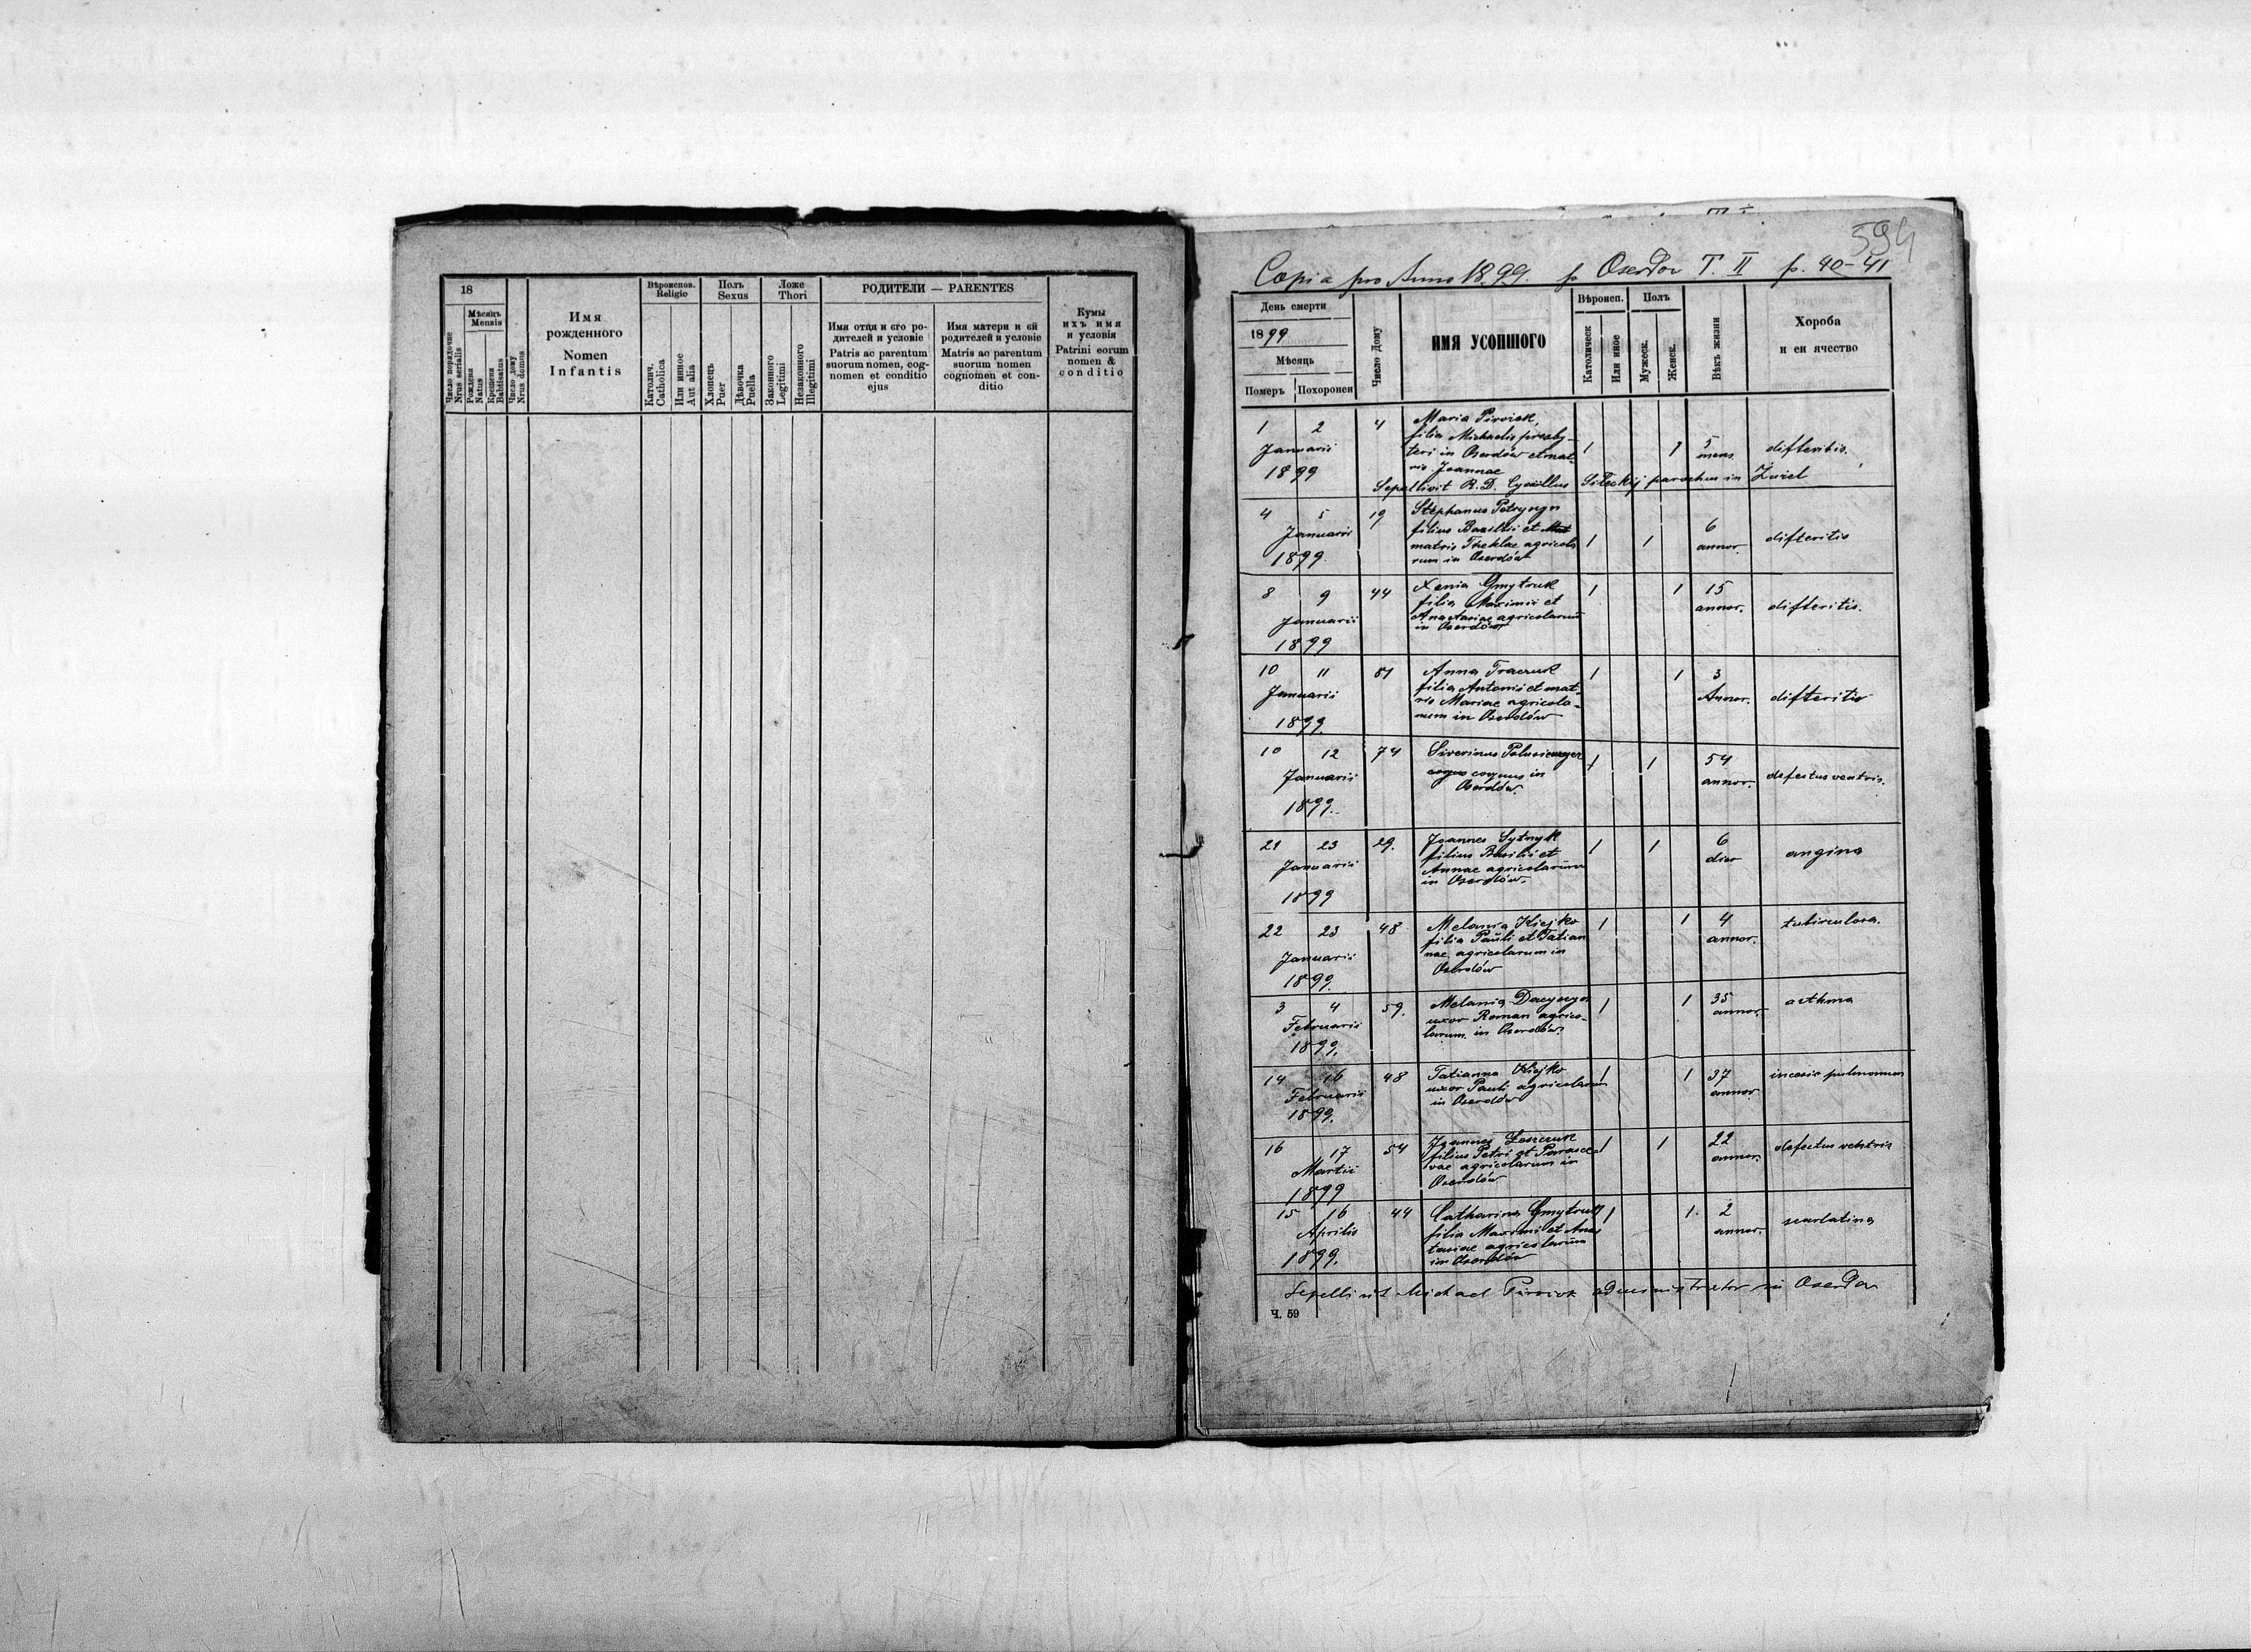 18
Мѣсяць
Mensis
Число порядочне
Nrus serialis
Рожденя
Natus
Крещеня
Babtisatus
Число дому
Nrus domus
Имя
рожденного
Nomen
Infantis
Вѣроиспов.
Religio
Католич.
Catholica
Или инное
Aut alia
Полъ
Sexus
Хлопець
Puer
Дѣвочка
Puella
Ложе
Thori
Законного
Legitimi
Незаконного
Illegitimi
РОДИТЕЛИ — PARENTES
Имя отця и єго ро-
дителей и условіє
Patris ac parentum
suorum nomen, cog-
nomen et conditio
ejus
Имя матери и єй
родителей и условіє
Matris ac parentum
suorum nomen
cognomen et con-
ditio
Кумы
ихъ имя
и условія
Patrini eorum
nomen &
conditio
594
Copia pro Anno 1899. p Oserdow T. II p. 40-41
День смерти
1899
Мѣсяць
Померъ
Похоронен
Число дому
ИМЯ УСОПШОГО
Вѣроисп.
Католическ
Или иное
Полъ
Мужеск.
Женск.
Вѣкъ жизни
Хороба
и єи ячество
1 2 4 Maria
filia Michaelis presby-
teri in Oserdów et mat-
ris Joannae
Januarii
1899
1 1 5
mens.
difteritis.
Sepellivit R. D. Cyrillus Siteckij parochus in
4 5 19 Stephanus
filius Basilii et
matris Theklae agricola
rum in Oserdów
Januarii
1899.
1 1 6
annor.
difteritis
8 9 44 Xenia Gmytruk
filia Maximi et
Anastasiae agricolarum
in Oserdów
Januarii
1899
1 1 15
annor.
difteritis.
10 11 81 Anna Traczuk
filia Antonii et mat-
ris Mariae agricola-
rum in Oserdów
Januarii
1899.
1 1 3
Annor.
difteritis
10 12 74 Siverinus
in
Oserdów.
Januarii
1899.
1 1 54
annor.
defectus ventris.
21 23 29. Joannes Sytnyk
filius Basilii et
Annae agricolarum
in Oserdów.
Januarii
1899
1 1 6
dier
angina
22 23 48 Melania Kiejko
filia Pauli et Tatian
nae agricolarum in
Oserdów
Januarii
1899.
1 1 4
annor.
tubirculosa.
3 4 59. Melania
uxor Roman agrico-
larum in Oserdów.
Februarii
1899.
1 1 35
annor.
asthma
14 16 48 Tatianna Kiejko
uxor Pauli agricolarum
in Oserdów
Februarii
1899.
1 1 37
annor
pulmonum
16 17 54 Joannes Leszczuk
filius Petri et Parasce
vae agricolarum in
Oserdów
Martii
1899
1 1 22
annor.
defectus ventris
15 16 44 Catharina Gmytruk
filia Maximi et Anas
tasiae agricolarum
in Oserdów
Aprilis
1899.
1 1. 2
annor.
scarlatina
Sepellivit Michael administrator in Oserdow
Ч. 59